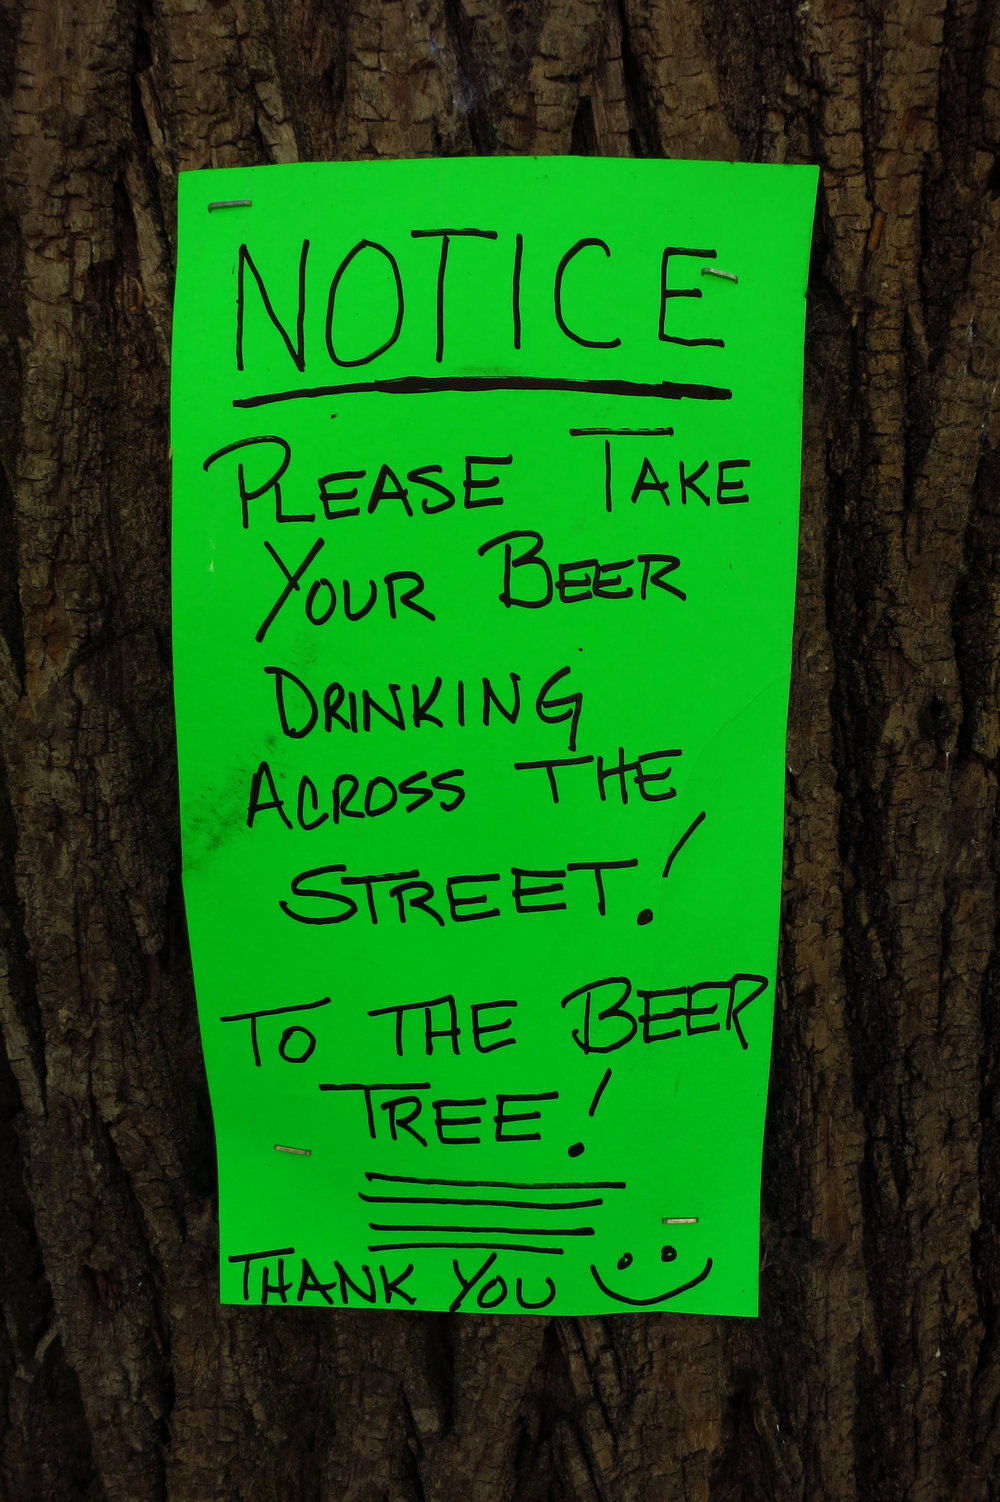 NOTICE
PLEASE TAKE
YOUR BEER
DRINKING
ACROSS THE
STREET!
TO THE BEER
TREE!
THANK YOU